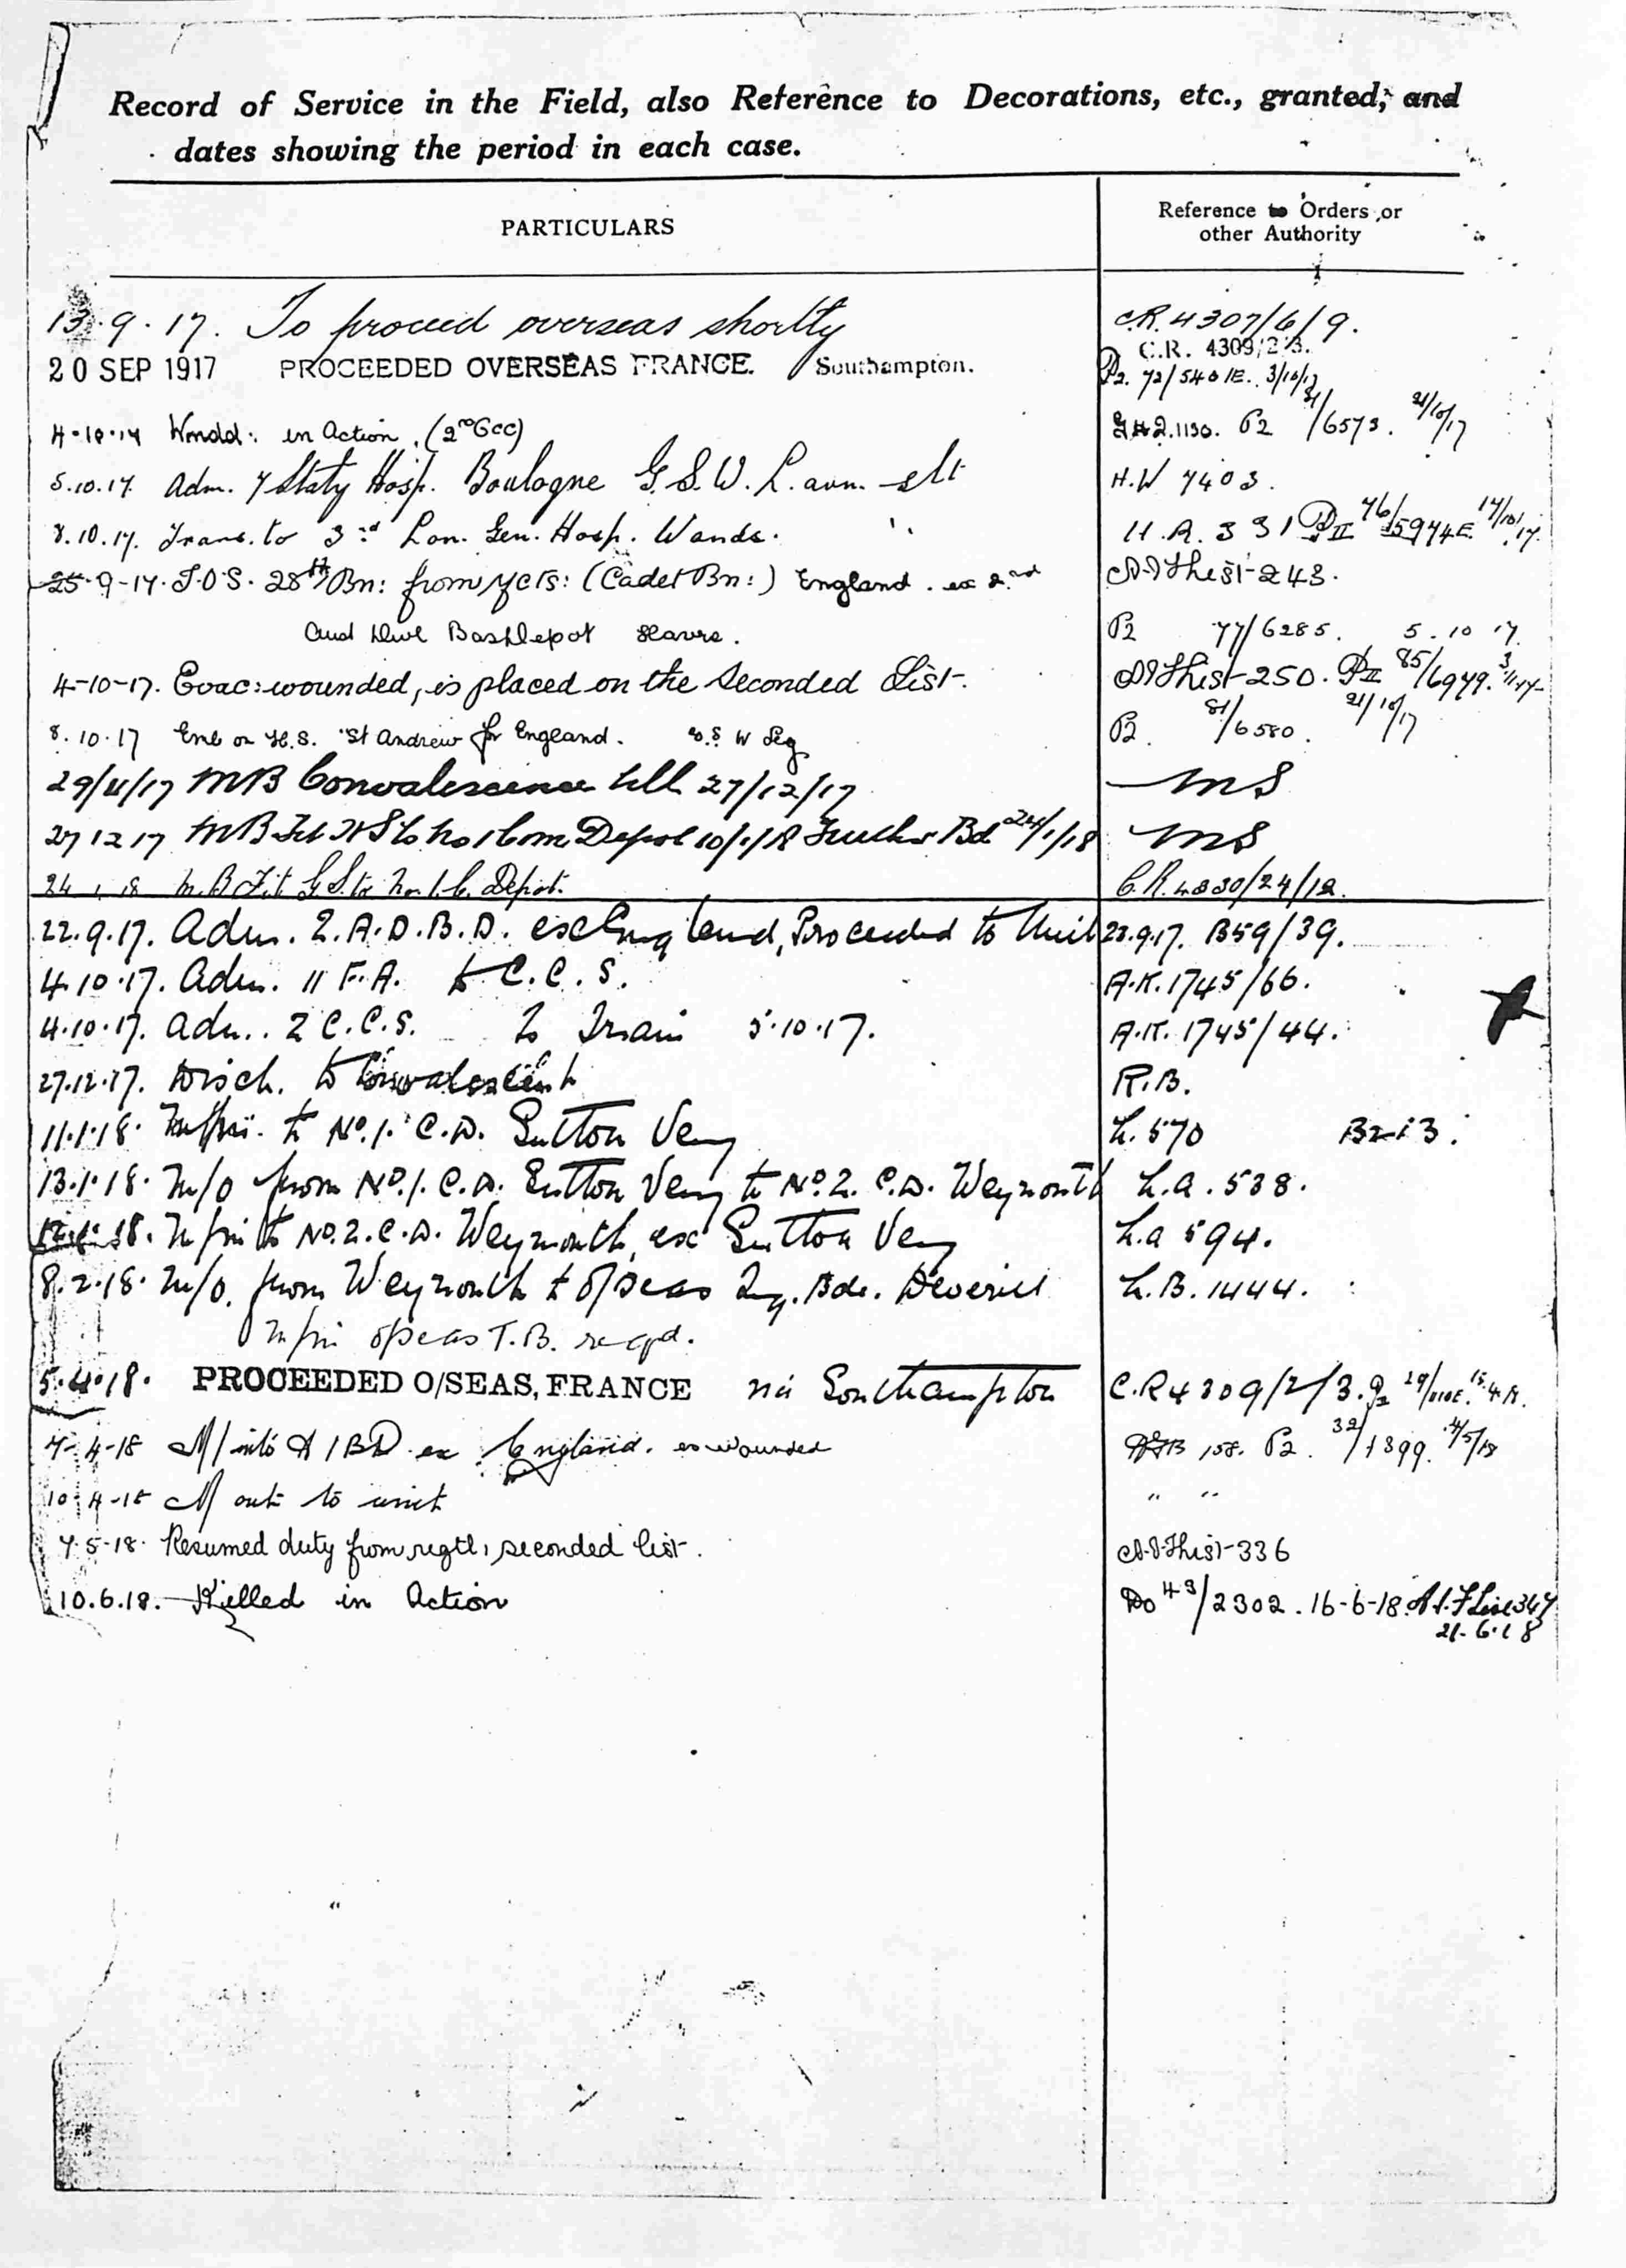 Record of Service in the Field, also Reference to Decorations, etc., granted, and
dates showing the period in each case.
PARTICULARS
Reference to Orders or
other Authority
13.9.17. To proceed overseas shortly C.R. 4307/6/9.
20 SEP 1917 PROCEEDED OVERSEAS FRANCE. Southampton. C.R. 4309/2/3.
P2. 72/5401E. 3/10/17
4.10.17 Wondd: in Action. (2nd Occ) 1130. P2 81/6573. 21/10/17
5.10.17. Adm. 7 Staty Hosp. Boulogne G.S.W. L. arm. slt H.W 7403.
8.10.17. Trans. to 3rd Lon. Gen. Hosp. Wands. " H.A. 331 PII 76/5974E 17/10/17.
25-9-17. T.O.S. 28th Bn: from Yels: (Cadet Bn:) England. ex 2nd AIF List 243.
Aust Divl Base Depot Havre. P2 77/6285. 5.10.17.
4-10-17. Evac: wounded, is placed on the Seconded List. AIF List 250. PII 85/6979. 3/11/17
8.10.17 Emb on H.S. "St Andrew for England. G.S W Leg P2. 81/6580. 21/10/17
29/11/17 MB Convalescence till 27/12/17 MS
27 12 17 MB Fit HS to No 1 Com Depot 10/1/18 Further Bd 24/1/18 MS
24.1.18 M.B Fit G.S. to No. 1. C. Depot. C.R. 4830/24/12.
22.9.17. Adm. 2.A.D.B.D. ex England, Proceeded to Unit 23.9.17. B59/39.
4.10.17. Adm. 11 F.A. to C.C.S. A.K. 1745/66.
4.10.17. Adm.. 2 C.C.S. To Train 5.10.17. A.K. 1745/44.
27.12.17. Disch. to Convalescent R.B.
11.1.18. M/in. to No. 1. C.D. Sutton Veny L. 570 B213.
13.1.18. M/O from No. 1. C.D. Sutton Veny to No. 2. C.D. Weymouth L.A. 538.
18. M/in to No. 2. C.D. Weymouth, ex Sutton Veny L.a 594.
8.2.18. M/O. from Weymouth to O/Seas Trg. Bde. Deverill L.B. 1444.
M/in O/Seas T.B. reqd.
5.4.18. PROCEEDED O/SEAS, FRANCE via Southampton C.R 4309/2/3. P2 29/ 15.4.18.
7-4-18 M/ into A I B D ex England. ex wounded 158. P2. 32/1399. 4/5/18
10-4-18 M out to unit " "
7.5-18. Resumed duty from regtl, seconded list. AIF List 336
10.6.18. Killed in Action DO 43/2302. 16-6-18. A.I.F List 347
21-6-18